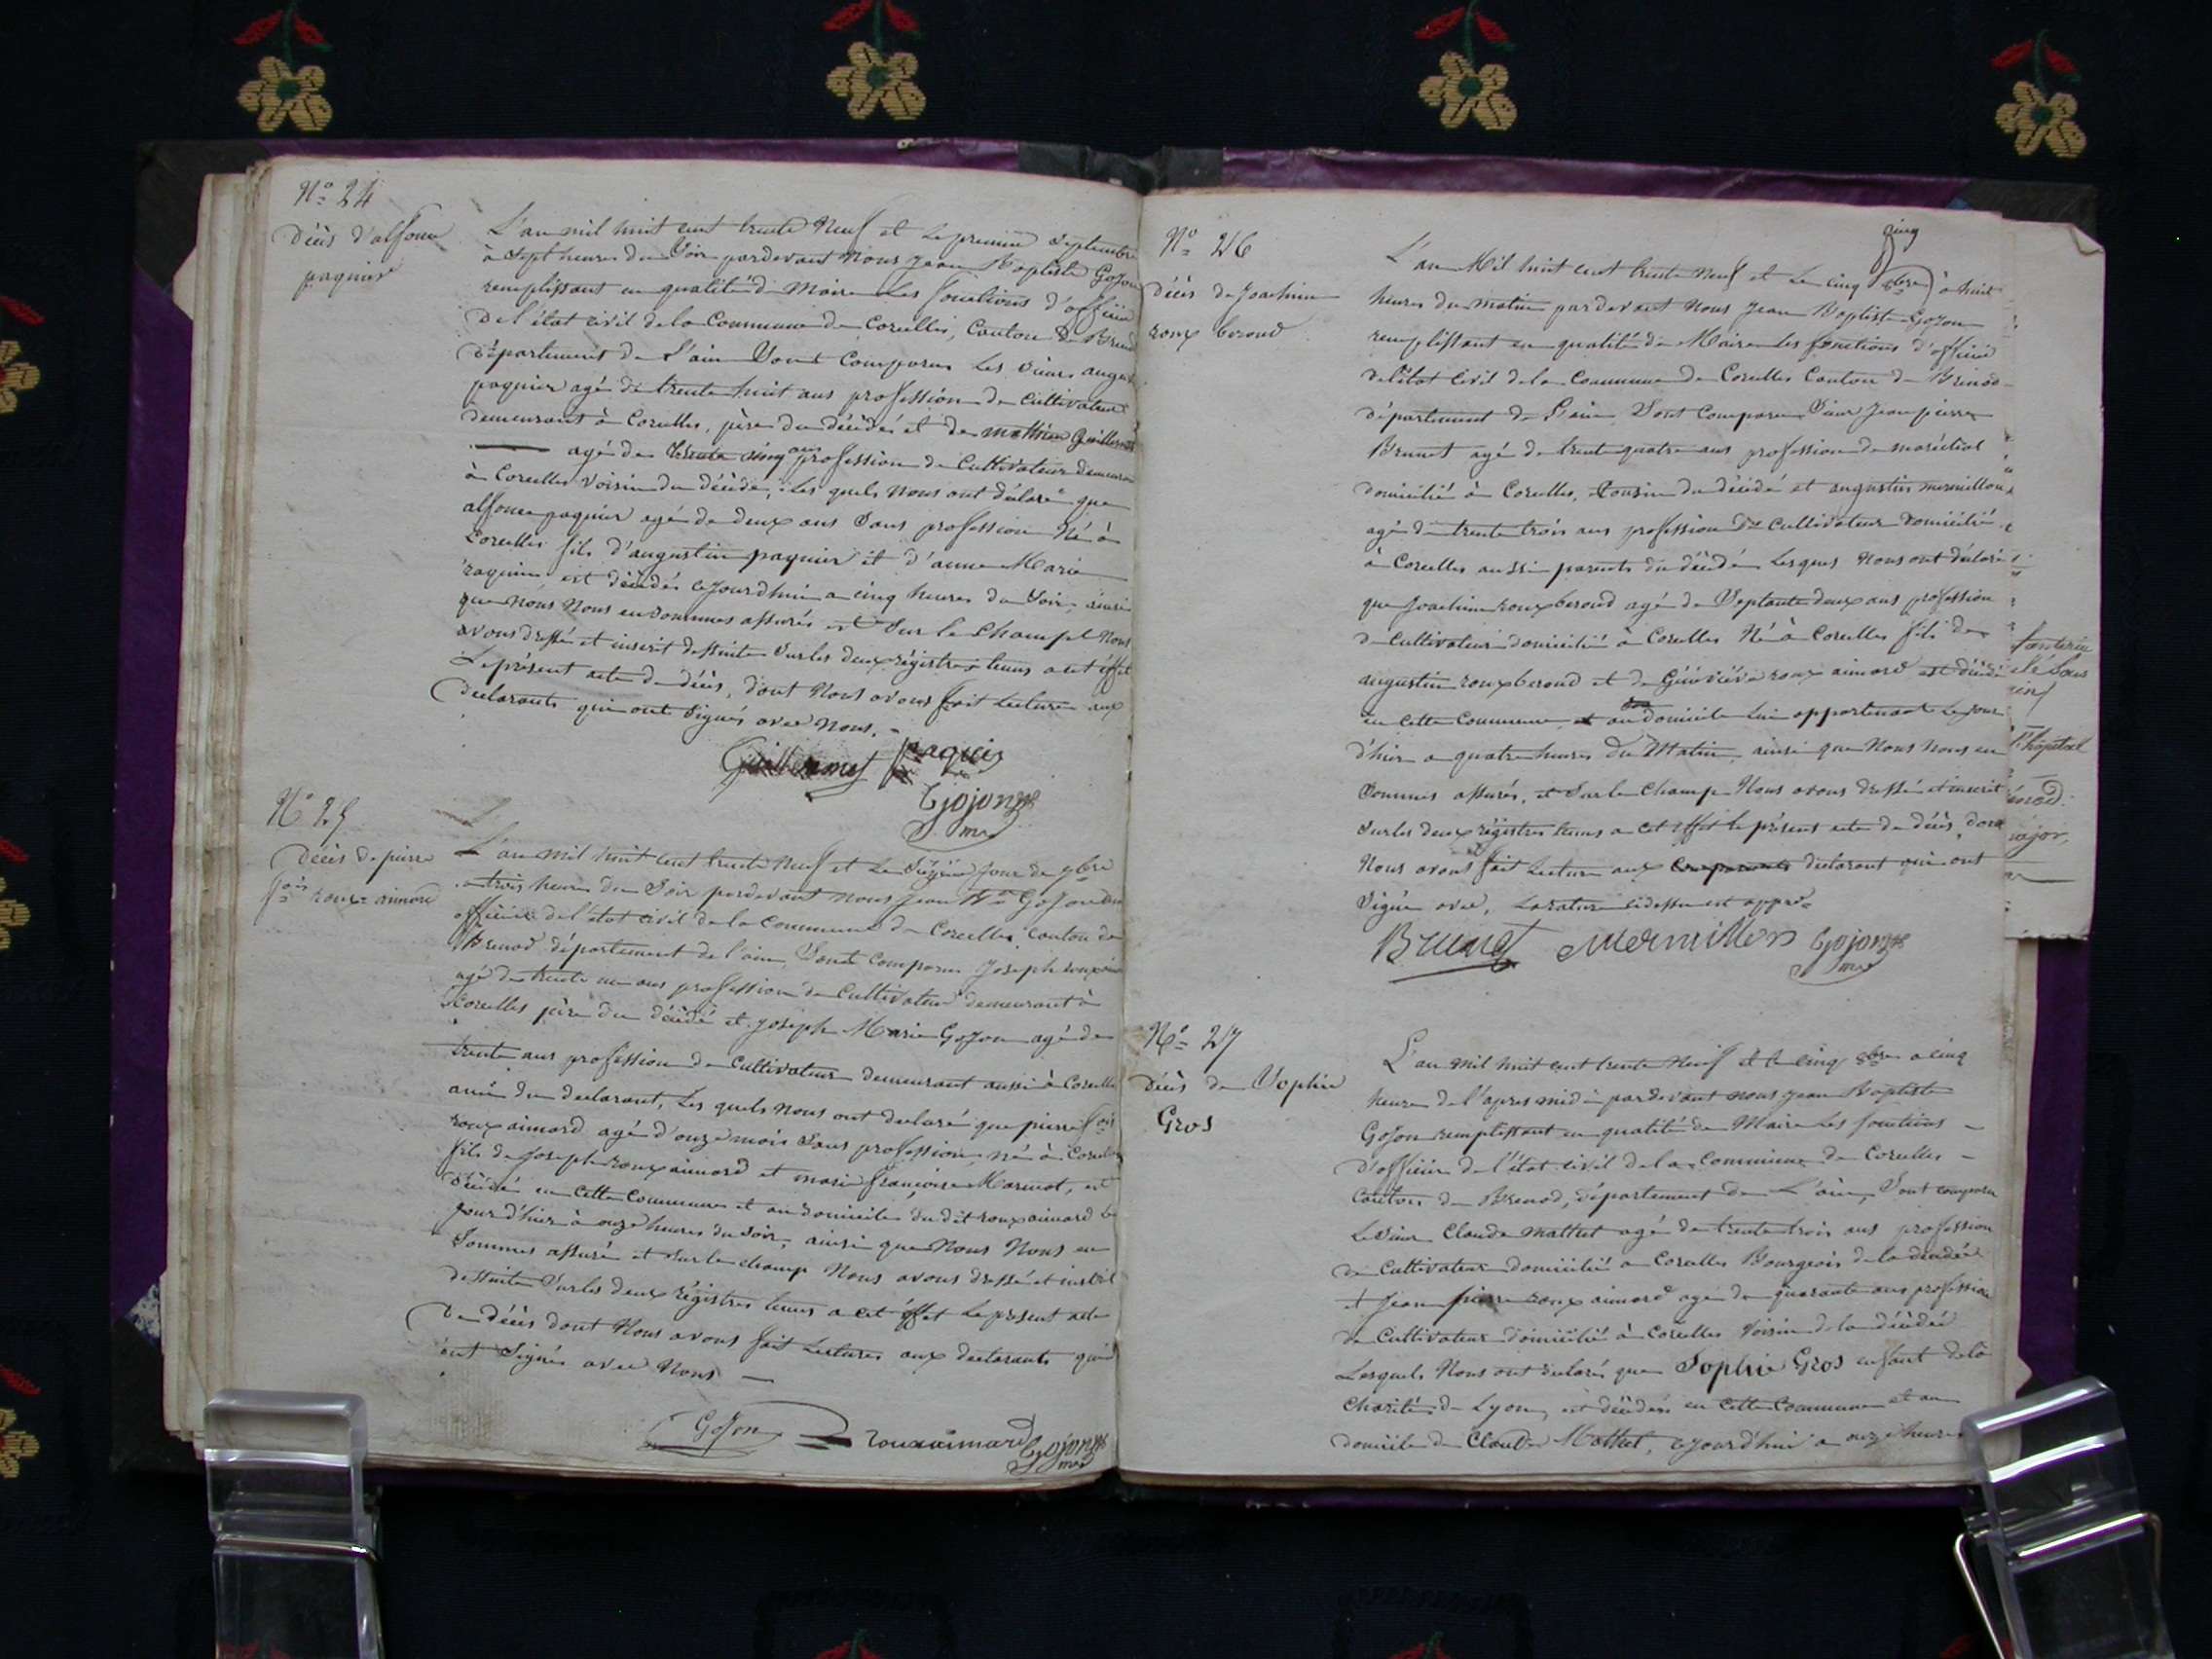 N° 24
Décès d'alfonse
paquier
L'an mil huit cent trente Neuf et le premier Septembre
à Sept heures du Soir pardevant Nous Jean Baptiste Gojon
remplissant en qualité de Maire Les fonctions d'officier
De l'état civil de la Commune de Corcelles, Canton de Brenod
département de l'ain Sont Comparus Les Sieurs
paquier agé de trente huit ans profession de Cultivateur
demeurant à Corcelles, père du décédé et de mathieu Guillermet
agé de trente cinq ans profession de Cultivateur demeurant
à Corcelles voisin du décédé, Les quels Nous ont déclaré que
alfonse paquier agé de deux ans Sans profession Né à
Corcelles fils d'augustin paquier et d'anne Marie
est décédé cejourdhui a cinq heures du Soir, ainsi
que Nous Nous en Sommes assurés et Sur le Champ Nous
avons dressé et inscrit dessuite Sur les deux régistres tenus a cet effet
Le présent acte de décès, dont Nous avons fait Lecture aux
declarants qui ont Signés avec Nous.
Guillermet paquier
Gojon
N° 25
Décès de pierre
fois roux-aimard
L'an mil huit cent trente Neuf et Le Sizième Jour de 7bre
a trois heures du Soir pardevant nous Jean Bte Gojon
officier de l'état civil de la Commune de Corcelles, Canton de
Brenod département de l'ain, Sont Comparus Joseph roux
agé de trente un ans profession de Cultivateur demeurant à
Corcelles père du décédé et Joseph Marie Gojon agé de
trente ans profession de Cultivateur demeurant aussi à Corcelles
ami du declarant, Les quels nous ont declaré que pierre fois
roux aimard agé d'onze mois Sans profession, né à Corcelles
fils de Joseph roux aimard et marie françoise Marinet, est
décédé en cette Commune et au domicile du dit roux aimard le
jour d'hier à onze heures du Soir, ainsi que Nous Nous en
Sommes assuré et Sur le champ Nous avons dressé et inscrit
dessuite Sur les deux régistres tenus a cet effet Le présent acte
De décès dont Nous avons fait Lectures aux declarants qui
ont Signés avec Nous
Gojon rouxaimard Gojon
N° 26
décès de Joachim
roux beroud
cinq
L'an Mil huit cent trente Neuf et Le cinq 8bre à huit
heures du matin pardevant Nous Jean Baptiste Gojon
remplissant en qualité de Maire Les fonctions d'officier
de l'état Civil de la Commune de Corcelles Canton de Brenod
département de L'ain Sont Comparu Sieur Jean pierre
Brunet agé de trente quatre ans profession de maréchal
domicilié à Corcelles, Cousin du décédé et augustin mermillon
agé de trente trois ans profession De Cultivateur Domicilié
à Corcelles aussi parents du décédé Lesques Nous ont déclaré
que Joachim roux beroud agé de Septante deux ans profession
de Cultivateur domicilié à Corcelles Né à Corcelles fils de
augustin roux beroud et de Géneviève roux aimard est décédé
en cette Commune au domicile Lui appartenant Le jour
d'hier a quatre heures du Matin, ainsi que Nous Nous en
Sommes assurés, et Sur le Champ Nous avons dressé et inscrit
Sur les deux régistres tenus a cet effet le présent acte de décès, dont
Nous avons fait Lecture aux comparants declarant qui ont
Signée avec, La rature cidessus est
Brunet Mermillon Gojon
N° 27
décès de Sophie
Gros
L'an mil huit cent trente Neuf et le cinq 8bre a cinq
heures de l'apres midi pardevant nous Jean Baptiste
Gojon remplissant en qualité de Maire Les fonctions
d'officier de l'état civil de la Commune de Corcelles
Canton de Brenod, département de L'ain, Sont comparu
Le Sieur Claude mathet agé de trente trois ans profession
de Cultivateur domicilié a Corcelles Bourgeois de la décédée
et Jean pierre roux aimard agé de quarante ans profession
de Cultivateur domicilié à Corcelles voisin de la décédée
Lesquels Nous ont declarés que Sophie Gros enfant de la
Charité de Lyon, est décédée en cette Commune et au
domicile de Claude Mathet, cejourd'hui a onze heures
l'hopital